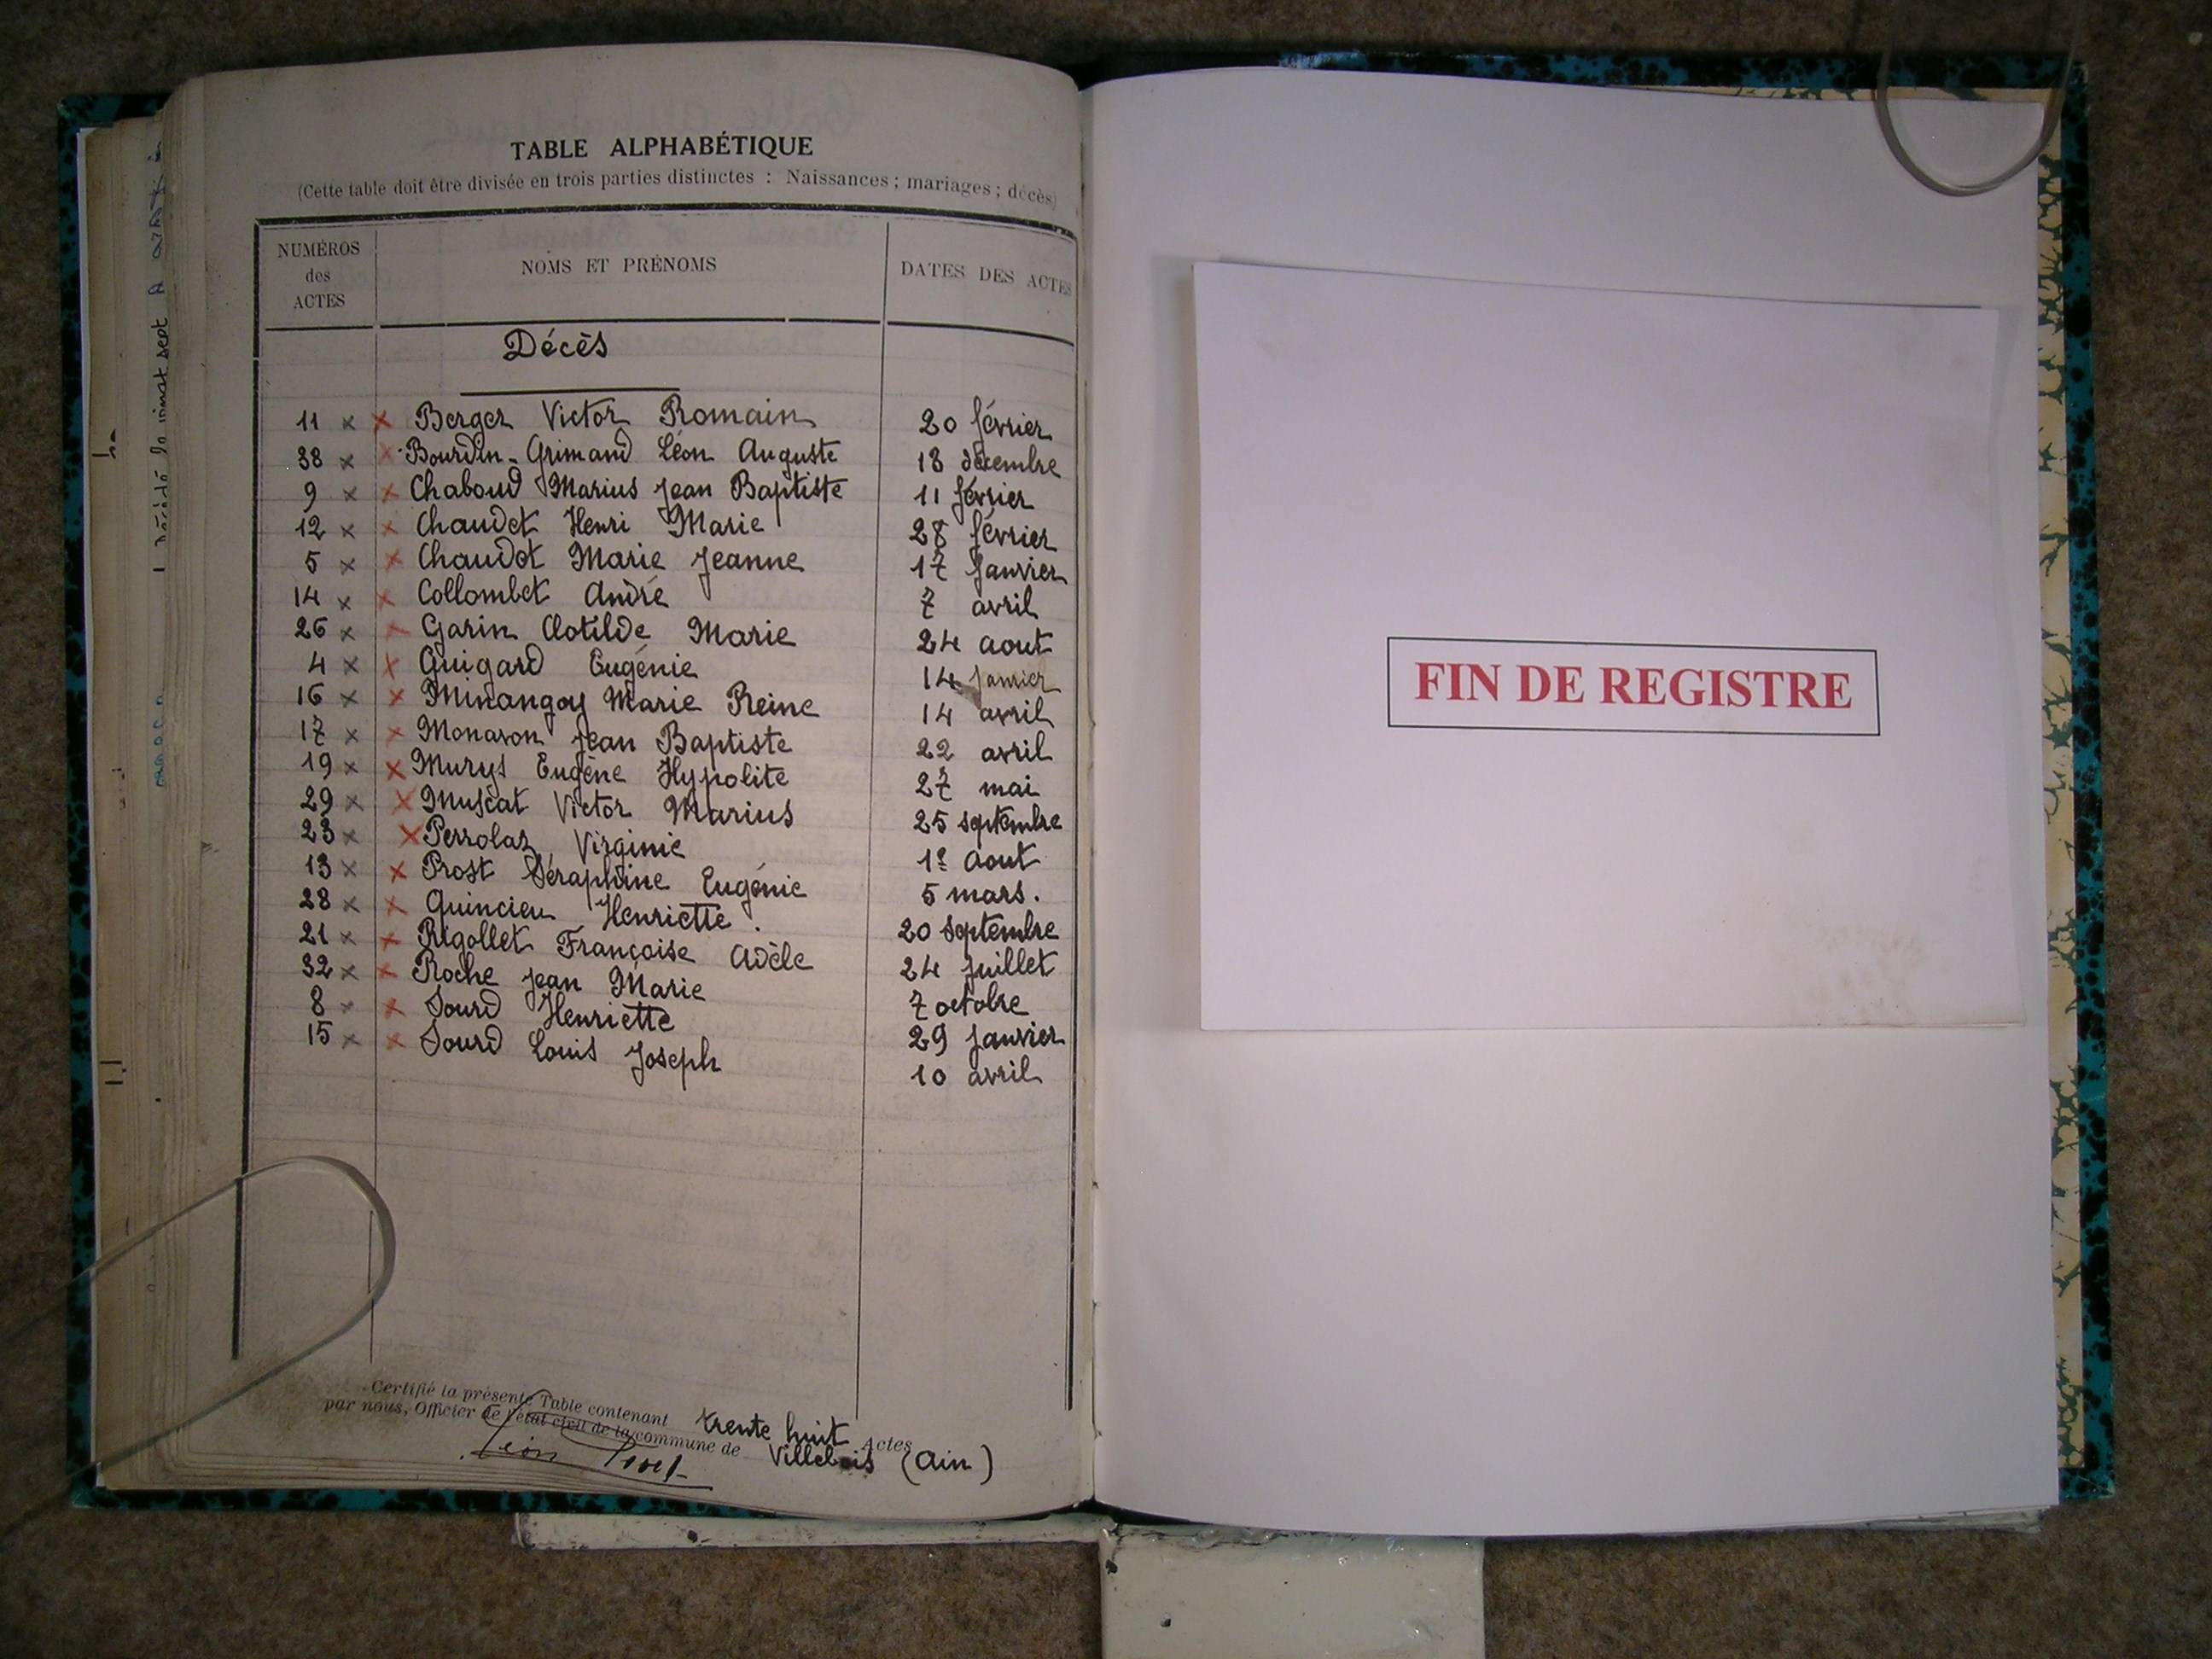 TABLE ALPHABÉTIQUE
(Cette table doit être divisée en trois parties distinctes : Naissances ; mariages ; décès)
NUMÉROS des ACTES NOMS ET PRÉNOMS DATES DES ACTES
Décès
11 x x Berger Victor Romain 20 février
38 x x Bourdin-Grimand Léon Auguste 18 décembre
9 x x Chaboud Marius Jean Baptiste 11 février
12 x x Chaudet Henri Marie 28 février
5 x x Chaudet Marie Jeanne 17 Janvier
14 x x Collombet André 7 avril
26 x x Garin Clotilde Marie 24 aout
4 x x Guigard Eugénie 14 Janvier
16 x x Minangoy Marie Reine 14 avril
17 x x Monavon Jean Baptiste 22 avril
19 x x Murys Eugène Hypolite 27 mai
29 x x Muscat Victor Marius 25 septembre
23 x x Perrolaz Virginie 1º aout
13 x x Prost Séraphine Eugénie 5 mars.
28 x x Quincieu Henriette. 20 septembre
21 x x Rigollet Françoise Adèle 24 Juillet
32 x x Roche Jean Marie 7 octobre
8 x x Sourd Henriette 29 Janvier
15 x x Sourd Louis Joseph 10 avril
Certifié la présente Table contenant trente huit Actes
par nous, Officier de l'état civil de la commune de Villebois (Ain)
Léon
FIN DE REGISTRE